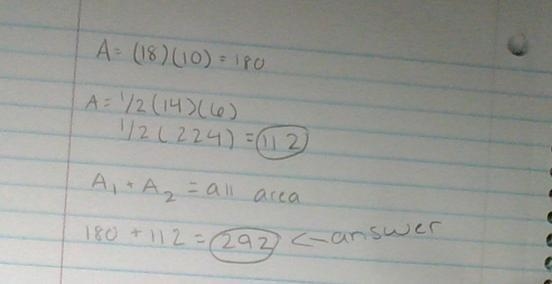 A = (18)(10) = 180
A = 1/2 (14)(6)
1/2 (224) = 112
A₁ + A₂ = all area
180 + 112 = 292 <- answer